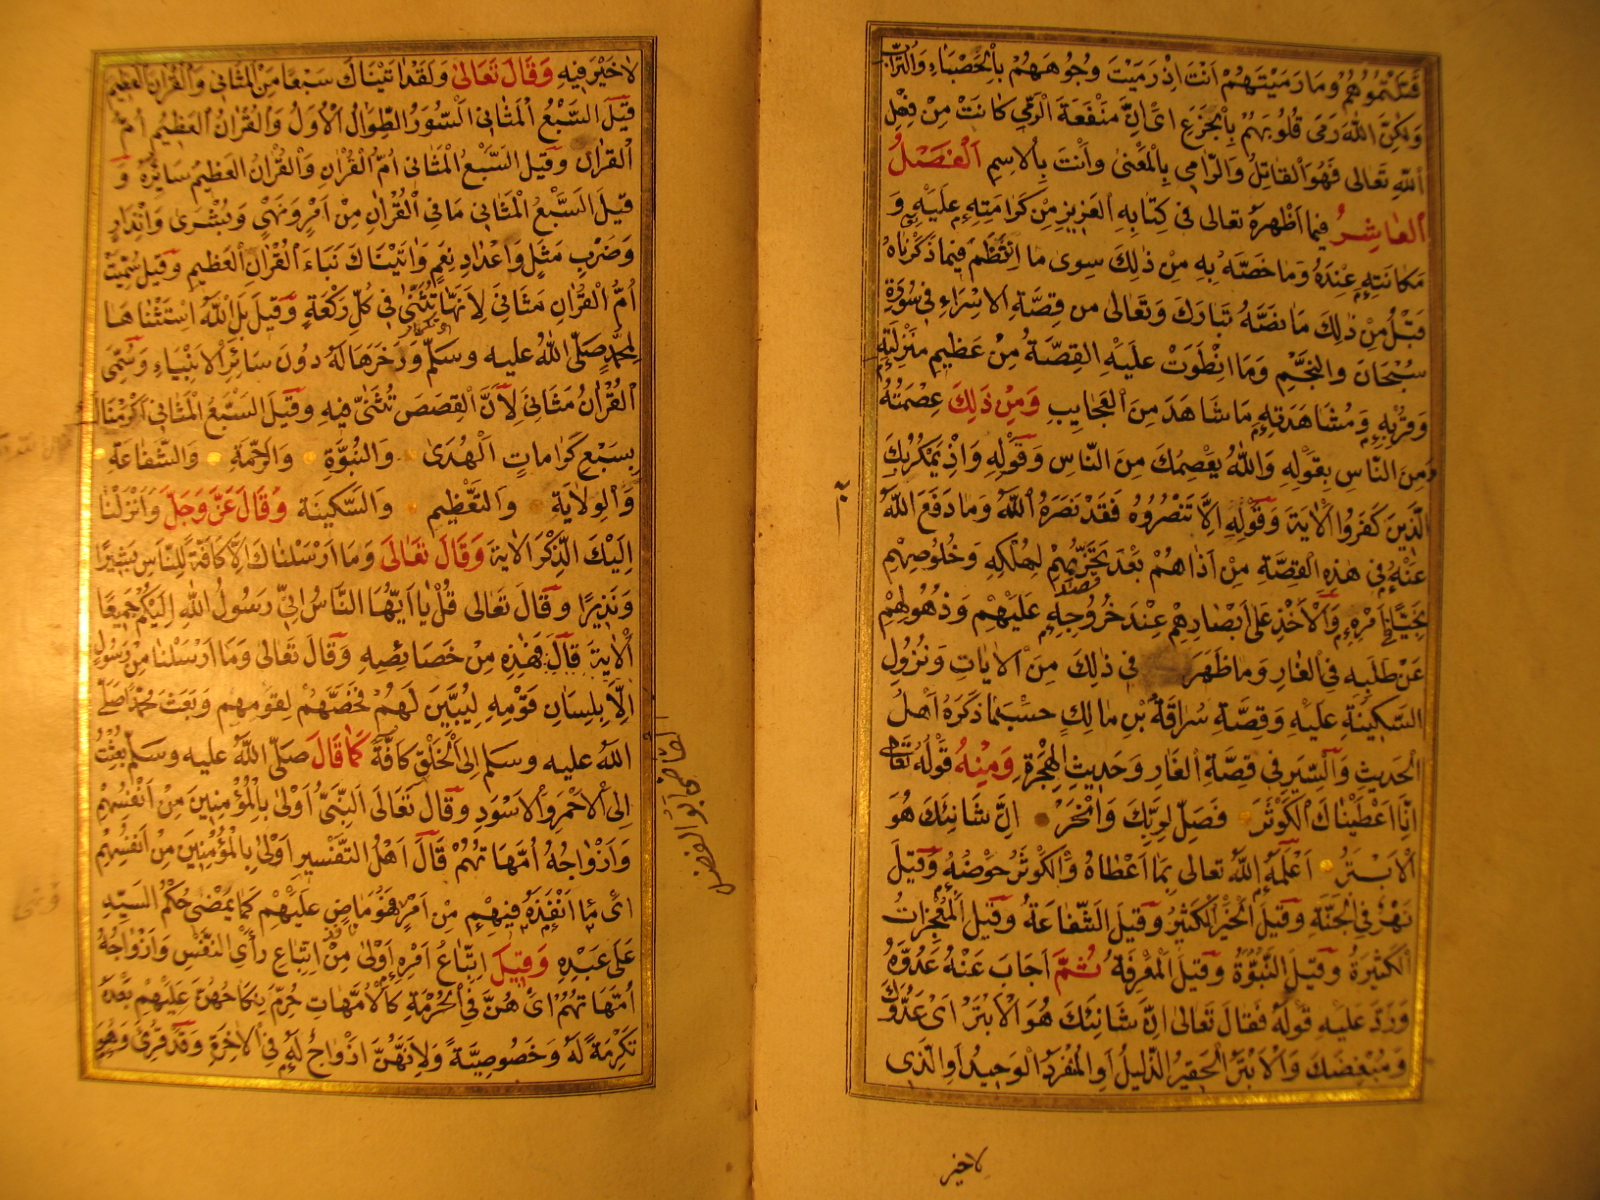 قتلتموهم وما رميتهم أنت إذ رميت وجوههم بالحصباء والتراب
ولكن الله رمى قلوبهم بالجزع اى ان منفعة الرمي كانت من فعل
الله تعالى فهو القاتل والرامي بالمعنى وانت بالاسم الفصل
العاشر فيما اظهره تعالى في كتابه العزيز من كرامته عليه و
مكانته عنده وما خصه به من ذلك سوى ما انتظم فيما ذكرناه
قبل من ذلك ما نصه تبارك وتعالى من قصة الاسراء في سورة
سبحان والنجم وما انطوت عليه القصة من عظيم منزلته
وقربه ومشاهدته ما شاهد من العجايب ومن ذلك عصمته
من الناس بقوله والله يعصمك من الناس وقوله واذ يمكر بك
الذين كفروا الاية وقوله الا تنصروه فقد نصره الله وما دفع الله
عنه في هذه القصة من اذاهم بعد تحزبهم لهلكه وخلوصهم
نجيا في امره والاخذ على ابصارهم عند خروجه عليهم وذهولهم
عن طلبه في الغار وما ظهر في ذلك من الايات ونزول
السكينة عليه وقصة سراقة بن مالك حسبما ذكره اهل
الحديث والسير في قصة الغار وحديث الهجرة ومنه قوله تعالى
انا اعطيناك الكوثر فصل لربك وانحر ان شانئك هو
الابتر اعلمه الله تعالى بما اعطاه والكوثر حوضه وقيل
نهر في الجنة وقيل الخير الكثير وقيل الشفاعة وقيل المعجزات
الكثيرة وقيل النبوة وقيل المعرفة ثم اجاب عنه عدوه
ورد عليه قوله فقال تعالى ان شانئك هو الابتر اى عدوك
ومبغضك والابتر الحقير الذليل او المفرد الوحيد او الذى
لا خير
لا خير فيه وقال تعالى ولقد اتيناك سبعا من المثاني والقران العظيم
قيل السبع المثاني السور الطوال الاول والقران العظيم ام
القران وقيل السبع المثاني ام القران والقران العظيم سايره و
قيل السبع المثاني ما في القران من امر ونهي وبشرى وانذار
وضرب مثل واعداد نعم واتيناك نباء القران العظيم وقيل سميت
ام القران مثاني لانها تثنى في كل ركعة وقيل بل الله استثناها
لمحمد صلى الله عليه وسلم وذخرها له دون سائر الانبياء وسمى
القران مثاني لان القصص تثنى فيه وقيل السبع المثاني اكرمناك
بسبع كرامات الهدى والنبوة والرحمة والشفاعة
والولاية والتعظيم والسكينة وقال عز وجل وانزلنا
اليك الذكر الاية وقال تعالى وما ارسلناك الا كافة للناس بشيرا
ونذيرا وقال تعالى قل يا ايها الناس اني رسول الله اليكم جميعا
الاية قال فهذه من خصائصه وقال تعالى وما ارسلنا من رسول
الا بلسان قومه ليبين لهم فخصهم لقومهم وبعث محمدا صلى
الله عليه وسلم الى الخلق كافة كما قال صلى الله عليه وسلم بعثت
الى الاحمر والاسود وقال تعالى النبي اولى بالمؤمنين من انفسهم
وازواجه امهاتهم قال اهل التفسير اولى بالمؤمنين من انفسهم
اى ما انفذه فيهم من امر فهو ماض عليهم كما يمضي حكم السيد
على عبده وقيل اتباع امره اولى من اتباع راى النفس وازواجه
امهاتهم اى هن في الحرمة كالامهات حرم نكاحهن عليهم بعده
تكرمة له وخصوصية ولانهن ازواج له في الاخرة وقد قرئ وهو
القاضى ابو الفضل